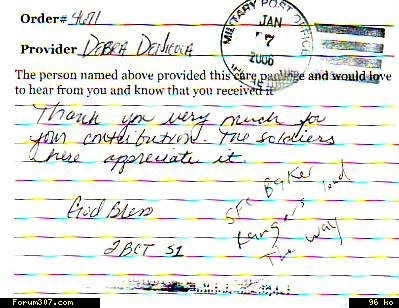 Order# 4671
MILITARY POST OFFICE
JAN
7
2006
Provider DEBRA DENICOLA
The person named above provided this care package and would love
to hear from you and know that you received it
Thank you very much for
your contribution. The soldiers
here appreciate it.
God Bless
2BCT S1
SFC Baker
Rangers lead
The way
Forum307.com
96 ko